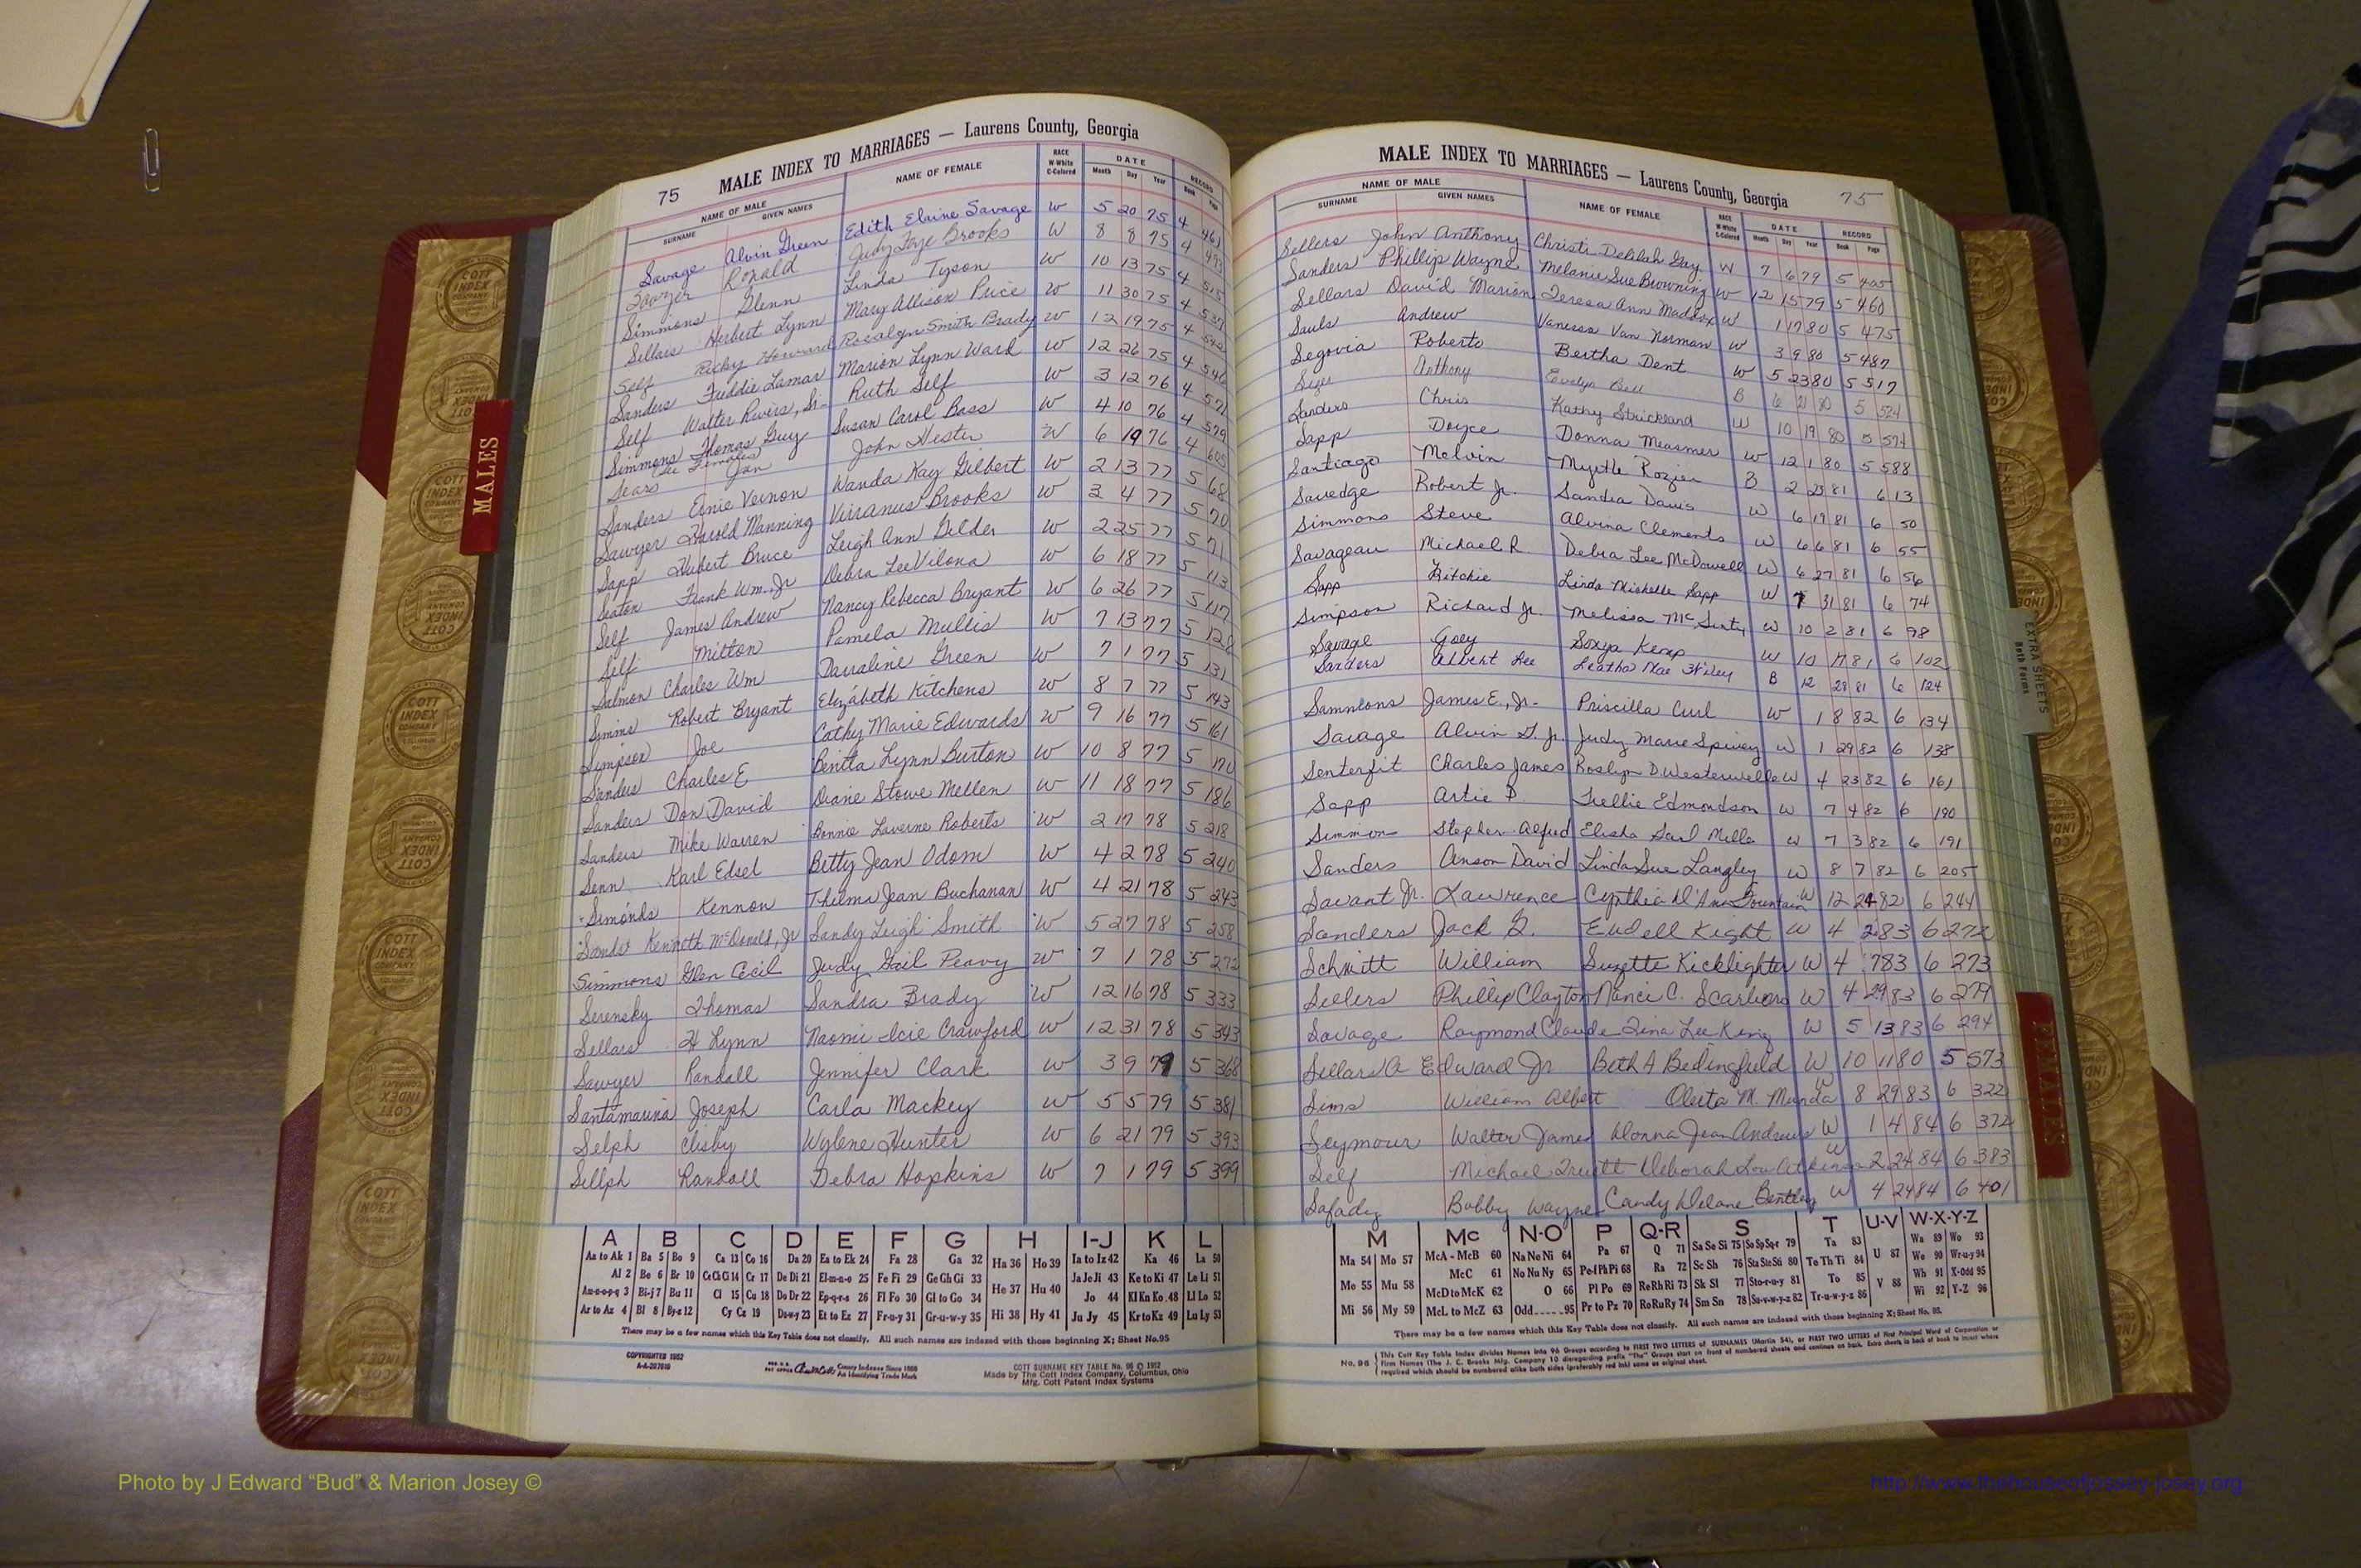 75 MALE INDEX TO MARRIAGES — Laurens County, Georgia
NAME OF MALE NAME OF FEMALE RACE W-White C-Colored DATE RECORD
SURNAME GIVEN NAMES Month Day Year Book Page
Savage Alvin Green Edith Elaine Savage W 5 20 75 4 461
Sawyer Ronald Judy Faye Brooks W 8 8 75 4 493
Simmons Glenn Linda Tyson W 10 13 75 4 515
Sellars Herbert Lynn Mary Allison Price W 11 30 75 4 537
Self Ricky Howard Rosalyn Smith Brady W 12 19 75 4 542
Sanders Freddie Lamar Marion Lynn Ward W 12 26 75 4 546
Self Walter Rivers, Sr. Ruth Self W 3 12 76 4 571
Simmons Thomas Guy Susan Carol Bass W 4 10 76 4 579
See Females
Sears Jan John Hester W 6 19 76 4 605
Sanders Ernie Vernon Wanda Kay Gilbert W 2 13 77 5 68
Sawyer Harold Manning Virranus Brooks W 3 4 77 5 70
Sapp Hubert Bruce Leigh Ann Gelder W 2 25 77 5 71
Seaton Frank Wm. Jr Debra Lee Vilona W 6 18 77 5 113
Self James Andrew Nancy Rebecca Bryant W 6 26 77 5 117
Self Milton Pamela Mullis W 7 13 77 5 128
Salmon Charles Wm Darraline Green W 7 1 77 5 131
Simms Robert Bryant Elizabeth Kitchens W 8 7 77 5 143
Simpson Joe Cathy Marie Edwards W 9 16 77 5 161
Sanders Charles E Benita Lynn Burton W 10 8 77 5 170
Sanders Don David Diane Stowe Mellen W 11 18 77 5 186
Sanders Mike Warren Bonnie Laverne Roberts W 2 17 78 5 218
Senn Karl Edsel Betty Jean Odom W 4 2 78 5 240
Simonds Kennon Thelma Jean Buchanan W 4 21 78 5 243
Sands Kenneth McDonald, Jr Sandy Leigh Smith W 5 27 78 5 258
Simmons Glen Cecil Judy Gail Peavy W 7 1 78 5 272
Serensky Thomas Sandra Brady W 12 16 78 5 333
Sellars H Lynn Naomi Icie Crawford W 12 31 78 5 343
Sawyer Randall Jennifer Clark W 3 9 79 5 368
Santamarina Joseph Carla Mackey W 5 5 79 5 381
Selph Clisby Wylene Hunter W 6 21 79 5 393
Sellph Randall Debra Hopkins W 7 1 79 5 399
A B C D E F G H I-J K L
Aa to Ak 1 Ba 5 Bo 9 Ca 13 Co 16 Da 20 Ea to Ek 24 Fa 28 Ga 32 Ha 36 Ho 39 Ia to Iz 42 Ka 46 La 50
Al 2 Be 6 Br 10 Ce Ch Ci 14 Cr 17 De Di 21 El-m-n-o 25 Fe Fi 29 Ge Gh Gi 33 He 37 Hu 40 Ja Je Ji 43 Ke to Ki 47 Le Li 51
Am-n-o-p-q 3 Bi-j 7 Bu 11 Cl 15 Cu 18 Do Dr 22 Ep-q-r-s 26 Fl Fo 30 Gl to Go 34 Jo 44 Kl Kn Ko 48 Ll Lo 52
Ar to Az 4 Bl 8 By-z 12 Cy Cz 19 Du-w-y 23 Et to Ez 27 Fr-u-y 31 Gr-u-w-y 35 Hi 38 Hy 41 Ju Jy 45 Kr to Kz 49 Lu Ly 53
There may be a few names which this Key Table does not classify. All such names are indexed with those beginning X; Sheet No.95
COPYRIGHTED 1952
A-A-207019
County Indexes Since 1888
An Identifying Trade Mark
COTT SURNAME KEY TABLE No. 96 © 1952
Made by The Cott Index Company, Columbus, Ohio
Mfg. Cott Patent Index Systems
MALE INDEX TO MARRIAGES — Laurens County, Georgia 75
NAME OF MALE NAME OF FEMALE RACE W-White C-Colored DATE RECORD
SURNAME GIVEN NAMES Month Day Year Book Page
Sellers John Anthony Christi Delilah Gay W 7 6 79 5 405
Sanders Phillip Wayne Melanie Sue Browning W 12 15 79 5 460
Sellars David Marion Teresa Ann Maddox W 1 17 80 5 475
Sauls Andrew Vanessa Van Norman W 3 9 80 5 487
Segovia Roberto Bertha Dent W 5 23 80 5 517
Anthony Evelyn Bell B 6 21 80 5 524
Sanders Chris Kathy Strickland W 10 19 80 5 571
Sapp Doyce Donna Measmer W 12 1 80 5 588
Santiago Melvin Myrtle Rozier B 2 23 81 6 13
Savedge Robert Jr. Sandra Davis W 6 19 81 6 50
Simmons Steve Alvina Clements W 6 6 81 6 55
Savageau Michael R. Debra Lee McDowell W 6 27 81 6 56
Sapp Ritchie Linda Michelle Sapp W 7 31 81 6 74
Simpson Richard Jr. Melissa McGinty W 10 2 81 6 98
Savage Goey Sonya Kemp W 10 17 81 6 102
Sanders Albert Lee Leatha Mae Wiley B 12 28 81 6 124
Sammons James E., Jr. Priscilla Curl W 1 8 82 6 134
Savage Alvin G. Jr. Judy Marie Spivey W 1 29 82 6 138
Senterfit Charles James Roslyn D. Westerwelle W 4 23 82 6 161
Sapp Artie P. Trellie Edmondson W 7 4 82 6 190
Simmon Stephen Alfred Elisha Gail Mills W 7 3 82 6 191
Sanders Anson David Linda Sue Langley W 8 7 82 6 205
Savant Jr. Lawrence Cynthia D'Ann Fountain W 12 24 82 6 244
Sanders Jack G. Eudell Kight W 4 2 83 6 272
Schmitt William Suzette Kicklighter W 4 7 83 6 273
Sellers Phillip Clayton Nanci C. Scarboro W 4 29 83 6 279
Savage Raymond Claude Tina Lee King W 5 13 83 6 294
Sellars A Edward Jr Beth A Bedingfield W 10 11 80 5 573
Sims William Albert Oleta M. Munda W 8 29 83 6 322
Seymour Walter James Donna Jean Andrews W 1 4 84 6 372
Self Michael Truett Deborah Lou Atkinson W 2 24 84 6 383
Safady Bobby Wayne Candy Delane Bentley W 4 24 84 6 401
M Mc N-O P Q-R S T U-V W-X-Y-Z
Ma 54 Mo 57 McA - McB 60 Na Ne Ni 64 Pa 67 Q 71 Sa Se Si 75 So Sp Sq-r 79 Ta 83 Wa 89 Wo 93
Me 55 Mu 58 McC 61 No Nu Ny 65 Pe-f Ph Pi 68 Ra 72 Sc Sh 76 Sta Ste Sti 80 Te Th Ti 84 U 87 We 90 Wr-u-y 94
McD to McK 62 O 66 Pl Po 69 Re Rh Ri 73 Sk Sl 77 Sto-r-u-y 81 To 85 Wh 91 X-Odd 95
Mi 56 My 59 McL to McZ 63 Odd.....95 Pr to Pz 70 Ro Ru Ry 74 Sm Sn 78 Su-v-w-y-z 82 Tr-u-w-y-z 86 V 88 Wi 92 Y-Z 96
There may be a few names which this Key Table does not classify. All such names are indexed with those beginning X; Sheet No. 95.
No. 96 This Cott Key Table Index divides Names into 96 Groups according to FIRST TWO LETTERS of SURNAMES (Martin 54), or FIRST TWO LETTERS of First Principal Word of Corporation or
Firm Names (The J. C. Brooks Mfg. Company 10 disregarding prefix "The" Groups start on front of numbered sheets and continue on back. Extra sheets in back of book to insert where
required which should be numbered alike both sides (preferably red ink) same as original sheet.
MALES
FEMALES
EXTRA SHEETS
Both Forms
COTT INDEX COMPANY
Photo by J Edward “Bud” & Marion Josey ©
http://www.thehouseofjossey-josey.org